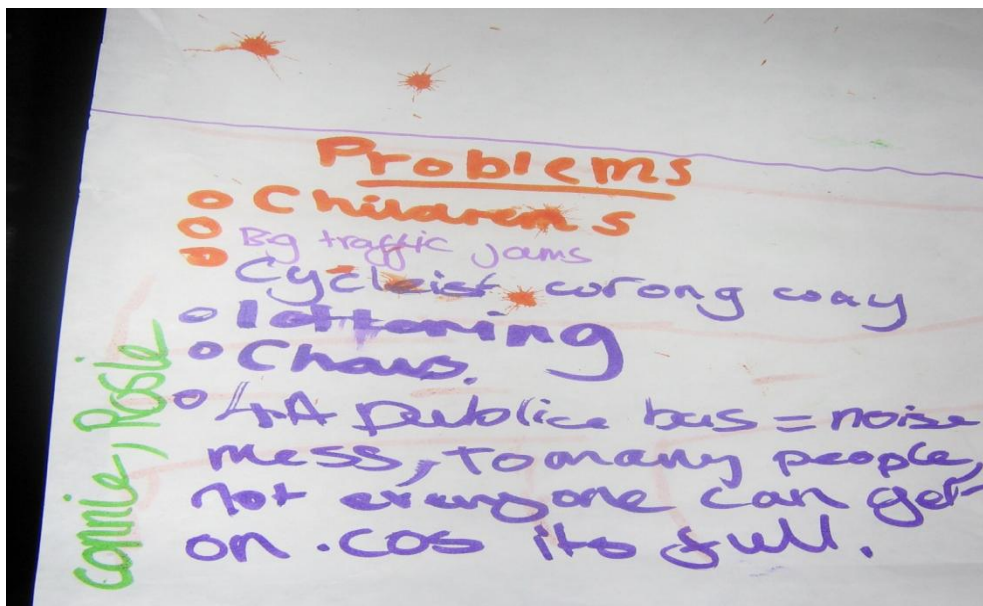 Problems
Childrens
Big traffic jams
Cycleist wrong way
lottering
Chaos.
4A publice bus = noise
mess, to many people,
not everyone can get
on .cos its full.
Connie, Rosie